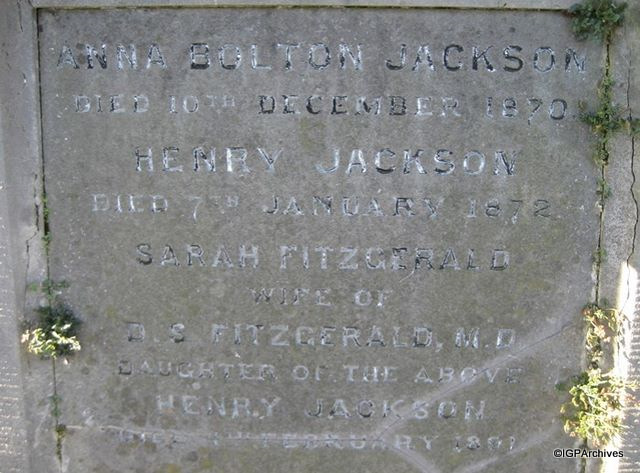 ANNA BOLTON JACKSON
DIED 10TH DECEMBER 1870
HENRY JACKSON
DIED 7TH JANUARY 1872
SARAH FITZGERALD
WIFE OF
D. S. FITZGERALD, M.D.
DAUGHTER OF THE ABOVE
HENRY JACKSON
DIED FEBRUARY 1891
©IGPArchives